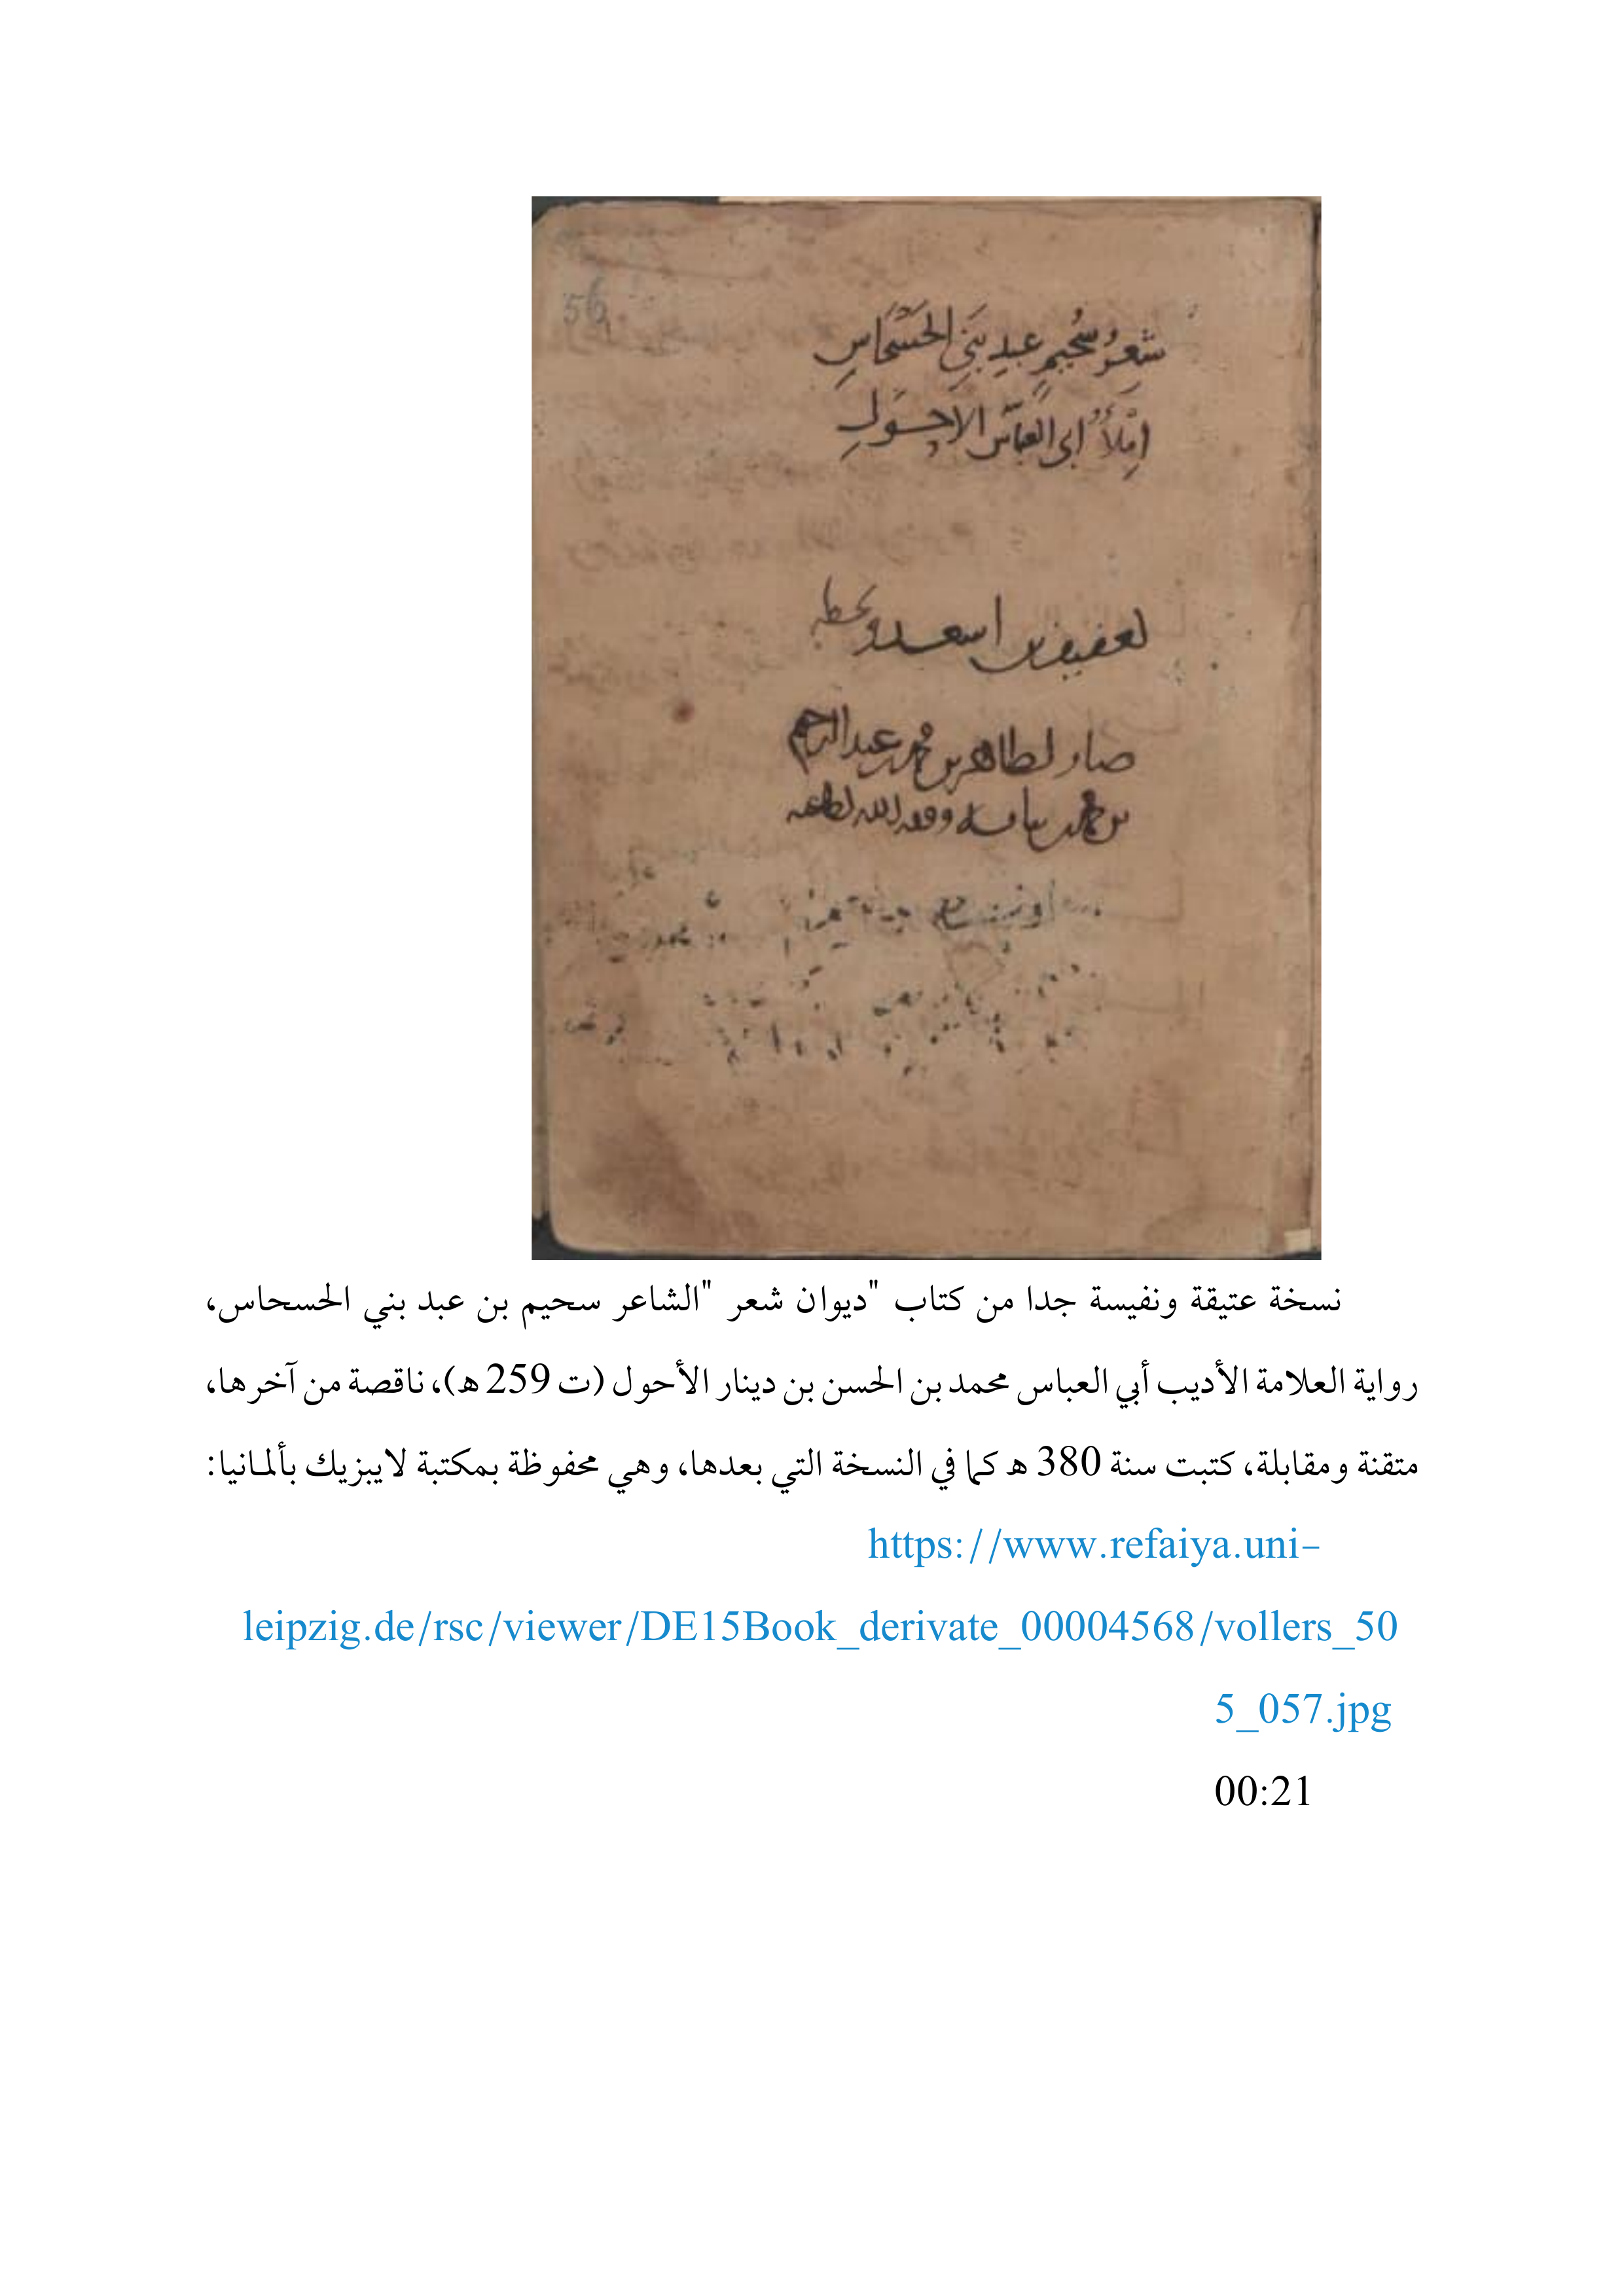 56
شِعرُ سُحَيمٍ عبدِ بَنِي الحَسْحَاسِ
إملأُ ابى العباس الاحولِ
لعفيف بن اسعد وبخطه
صار لطاهر بن محمد بن عبد الرحيم
بن محمد وفقه الله لطاعته
نسخة عتيقة ونفيسة جدا من كتاب "ديوان شعر "الشاعر سحيم بن عبد بني الحسحاس،
رواية العلامة الأديب أبي العباس محمد بن الحسن بن دينار الأحول (ت 259 هـ)، ناقصة من آخرها،
متقنة ومقابلة، كتبت سنة 380 هـ كما في النسخة التي بعدها، وهي محفوظة بمكتبة لايبزيك بألمانيا:
https://www.refaiya.uni-
leipzig.de/rsc/viewer/DE15Book_derivate_00004568/vollers_50
5_057.jpg
00:21